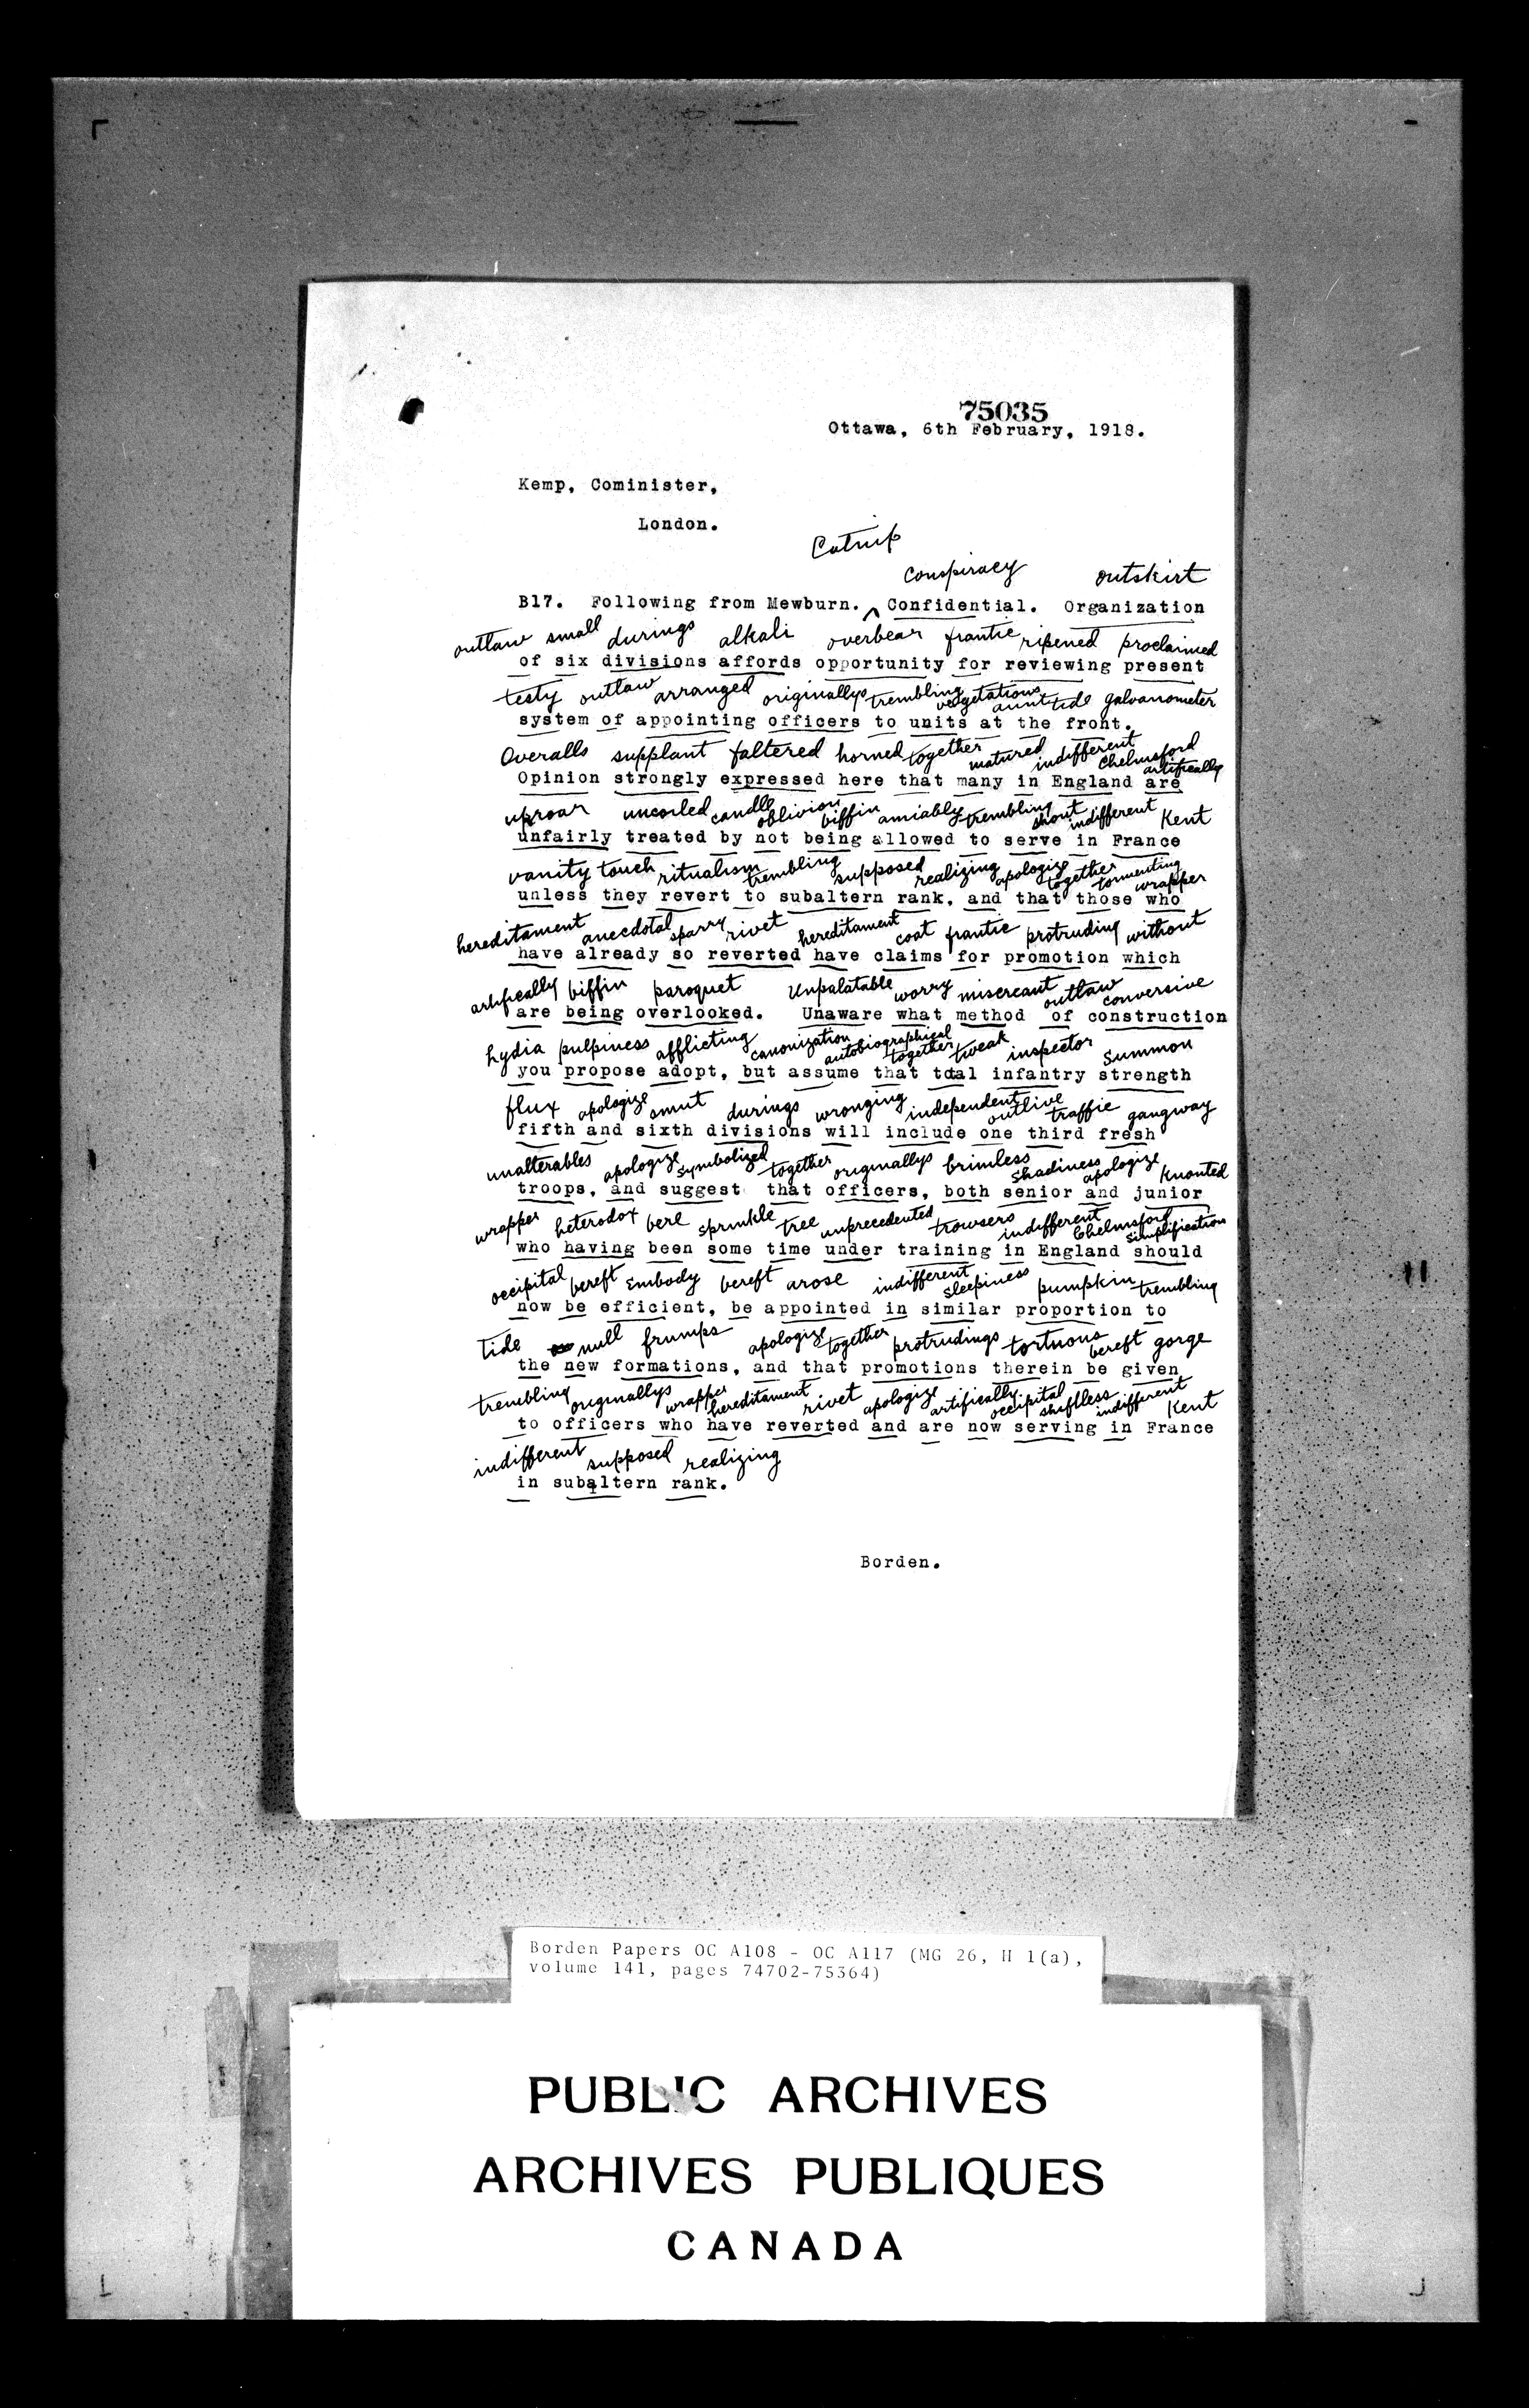 75035
Ottawa, 6th February, 1918.
Kemp, Cominister,
London.
Catnip
conspiracy outskirt
B17. Following from Mewburn. ^ Confidential. Organization
outlaw small durings alkali overbear frantic ripened proclaimed
of six divisions affords opportunity for reviewing present
testy outlaw arranged originallys trembling vegetations aunt tide galvanometer
system of appointing officers to units at the front.
Overalls supplant faltered horned together matured indifferent Chelmsford artifically
Opinion strongly expressed here that many in England are
uproar uncoiled candle oblivion biffin amiably trembling shout indifferent Kent
unfairly treated by not being allowed to serve in France
vanity touch ritualism trembling supposed realizing apologize together tormenting wrapper
unless they revert to subaltern rank, and that those who
hereditament anecdotal sparry rivet hereditament coat frantic protruding without
have already so reverted have claims for promotion which
artifically biffin paroquet Unpalatable worry miscreant outlaw conversive
are being overlooked. Unaware what method of construction
hydia pulpiness afflicting canonization autobiographical together tweak inspector summon
you propose adopt, but assume that total infantry strength
flux apologize smut durings wronging independent outlive traffic gangway
fifth and sixth divisions will include one third fresh
unalterables apologize symbolized together originallys brimless shadiness apologize knouted
troops, and suggest that officers, both senior and junior
wrapper heterodox bere sprinkle tree unprecedented trowsers indifferent Chelmsford simplification
who having been some time under training in England should
occipital bereft embody bereft arose indifferent sleepiness pumpkin trembling
now be efficient, be appointed in similar proportion to
tide null frumps apologize together protrudings tortuous bereft gorge
the new formations, and that promotions therein be given
trembling originallys wrapper hereditament rivet apologize artifically occipital shiftless indifferent Kent
to officers who have reverted and are now serving in France
indifferent supposed realizing
in subaltern rank.
Borden.
Borden Papers OC A108 - OC A117 (MG 26, H 1(a),
volume 141, pages 74702-75364)
PUBLIC ARCHIVES
ARCHIVES PUBLIQUES
CANADA